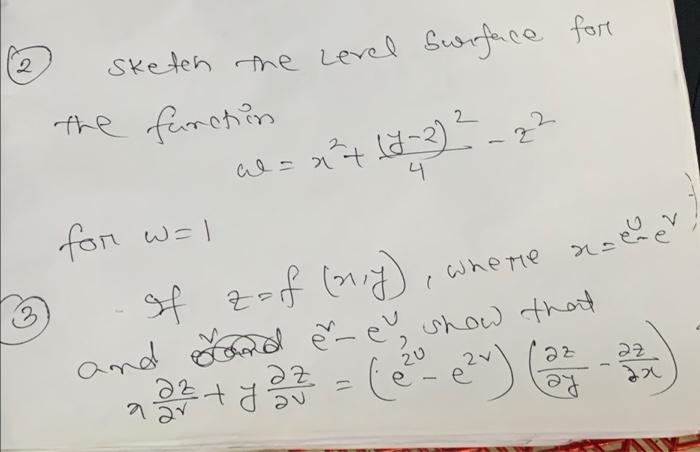 2 Sketch the Level Surface for
the function
w = x² + (y-2)²/4 - z²
for w=1
3 If z=f(x,y), where x=e^u-e^v,
and e^v-e^u, show that
x ∂z/∂v + y ∂z/∂v = (e^2u - e^2v) (∂z/∂y - ∂z/∂x)